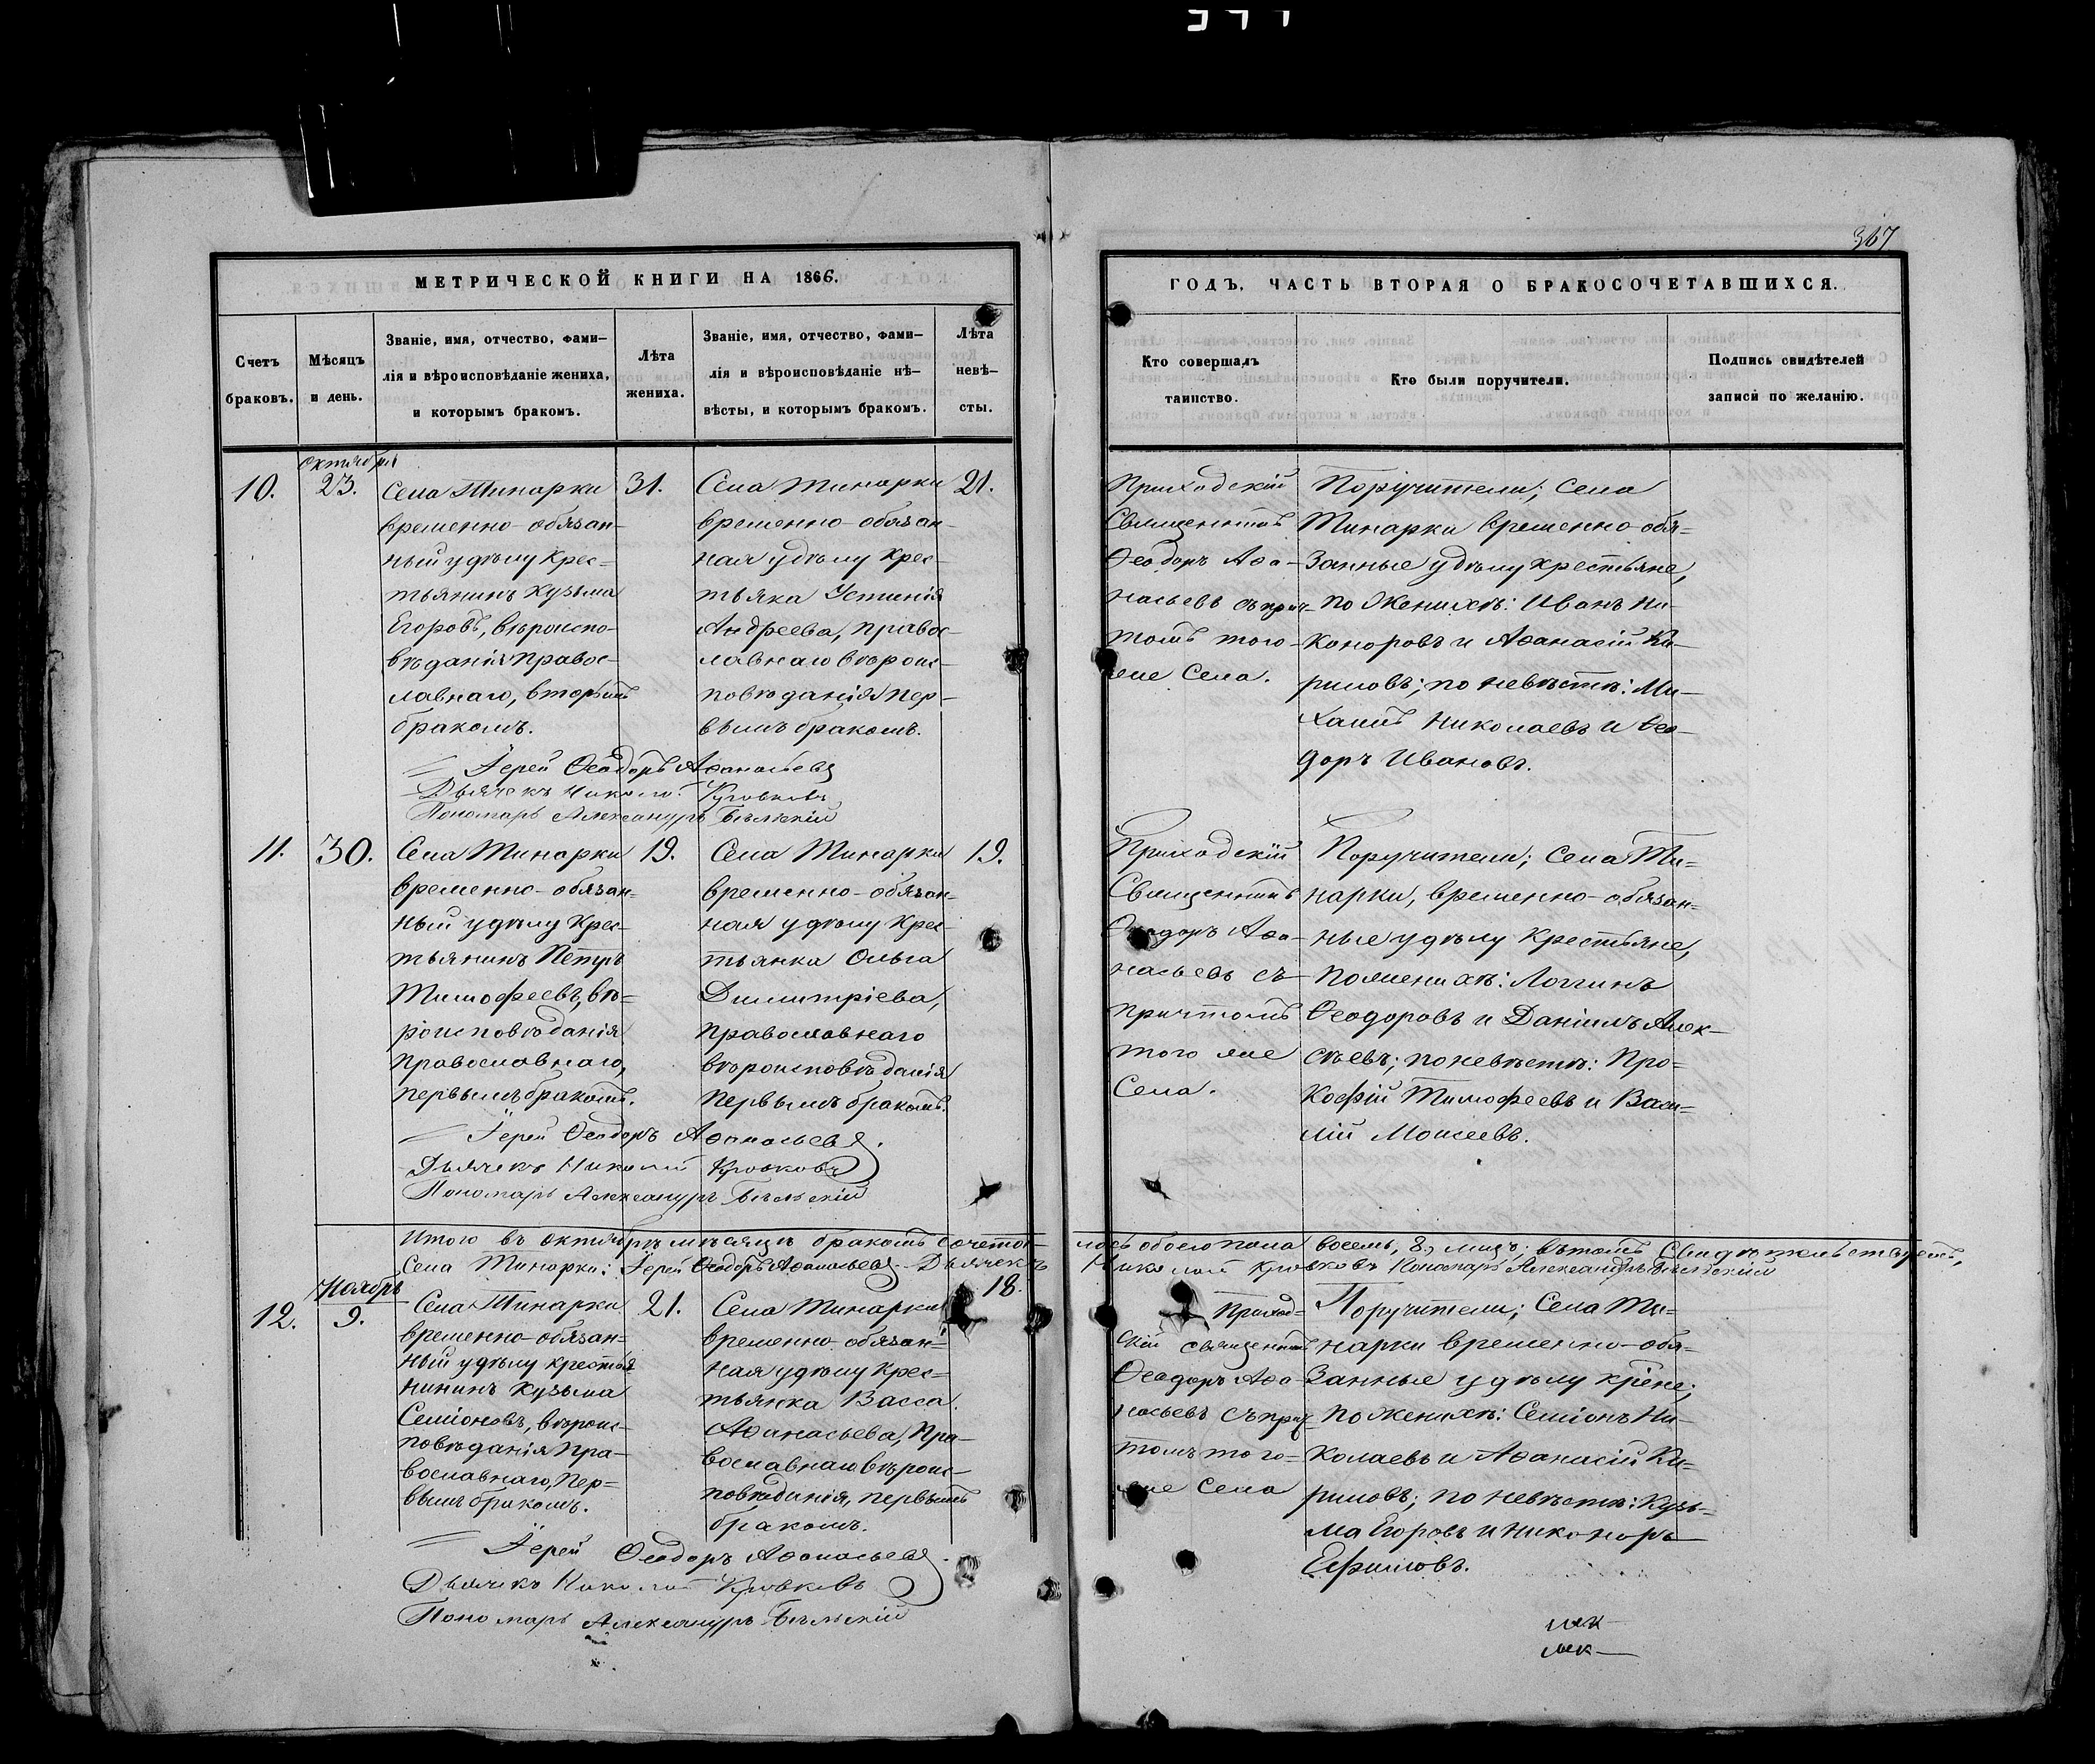 367
МЕТРИЧЕСКОЙ КНИГИ НА 1866.
Счетъ
браковъ.
Мѣсяцъ
и день.
Званіе, имя, отчество, фами-
лія и вѣроисповѣданіе жениха,
и которымъ бракомъ.
Лѣта
жениха.
Званіе, имя, отчество, фами-
лія и вѣроисповѣданіе нѣ-
вѣсты, и которымъ бракомъ.
Лѣта
невѣ-
сты.
ГОДЪ, ЧАСТЬ ВТОРАЯ О БРАКОСОЧЕТАВШИХСЯ.
Кто совершалъ
таинство.
Кто были поручители.
Подпись свидѣтелей
записи по желанію.
10.
Октября
23.
Села Тинарки
временно-обязан-
ный удѣлу крес-
тьянинъ Кузьма
Егоровъ, вѣроиспо-
вѣданія правос-
лавнаго, вторымъ
бракомъ.
31.
Села Тинарки
временно-обязан-
ная удѣлу крес-
тьяка Устинія
Андреева, правос-
лавнаго вѣроис-
повѣданія, пер-
вымъ бракомъ.
21.
Приходскій
Священникъ
Ѳеодоръ Аѳа-
насьевъ съ прич-
томъ того-
же Села.
Поручители; Села
Тинарки временно-обя-
занные удѣлу крестьяне,
по Женихѣ: Иванъ Ни-
коноровъ и Аѳанасій Ки-
риловъ; по невѣстѣ: Ми-
хаилъ Николаевъ и Ѳео-
доръ Ивановъ.
Іерей Ѳеодоръ Аѳанасьевъ
Дьячекъ Николай
Пономарь Александръ Бѣльскій
11.
30.
Села Тинарки
временно-обязан-
ный удѣлу крес-
тьянинъ Петръ
Тимофеевъ, вѣ-
роисповѣданія
православнаго,
первымъ бракомъ.
19.
Села Тинарки
временно-обязан-
ная удѣлу крес-
тьянка Ольга
Димитріева,
православнаго
вѣроисповѣданія
первымъ бракомъ.
19.
Приходскій
Священникъ
Ѳеодоръ Аѳа-
насьевъ съ
причтомъ
того же
Села.
Поручители; Села Ти-
нарки, временно-обязан-
ные удѣлу крестьяне,
по женихѣ: Логгинъ
Ѳеодоровъ и Даніилъ Алек-
сѣевъ; по невѣстѣ: Про-
кофій Тимофеевъ и Васи-
лій Моисеевъ.
Іерей Ѳеодоръ Аѳанасьевъ.
Дьячекъ Николай
Пономарь Александръ Бѣльскій
Итого въ Октябрѣ мѣсяцѣ бракомъ сочета-лось обоего пола восемь, 8, лицъ; въ томъ свидѣтельствуютъ,
Села Тинарки: Іерей Ѳеодоръ Аѳанасьевъ Дьячекъ Николай Пономарь Александръ Бѣльскій
12.
Ноябрь
9.
Села Тинарки
временно-обязан-
ный удѣлу крестья-
нинъ Кузьма
Семіоновъ, вѣроис-
повѣданія пра-
вославнаго, пер-
вымъ бракомъ.
21.
Села Тинарки
временно-обязан-
ная удѣлу крес-
тьянка Васса
Аѳанасьева, пра-
вославнаго вѣроис-
повѣданія, первымъ
бракомъ.
18.
Приход-
скій священникъ
Ѳеодоръ Аѳа-
насьевъ съ прич-
томъ того-
же Села
Поручители; Села Ти-
нарки временно-обя-
занные удѣлу крѣне;
по женихѣ: Семіонъ Ни-
колаевъ и Аѳанасій Ки-
риловъ; по невѣстѣ: Кузь-
ма Егоровъ и Никоноръ
Ефимовъ.
Іерей Ѳеодоръ Аѳанасьевъ.
Дьячекъ Николай
Пономарь Александръ Бѣльскій